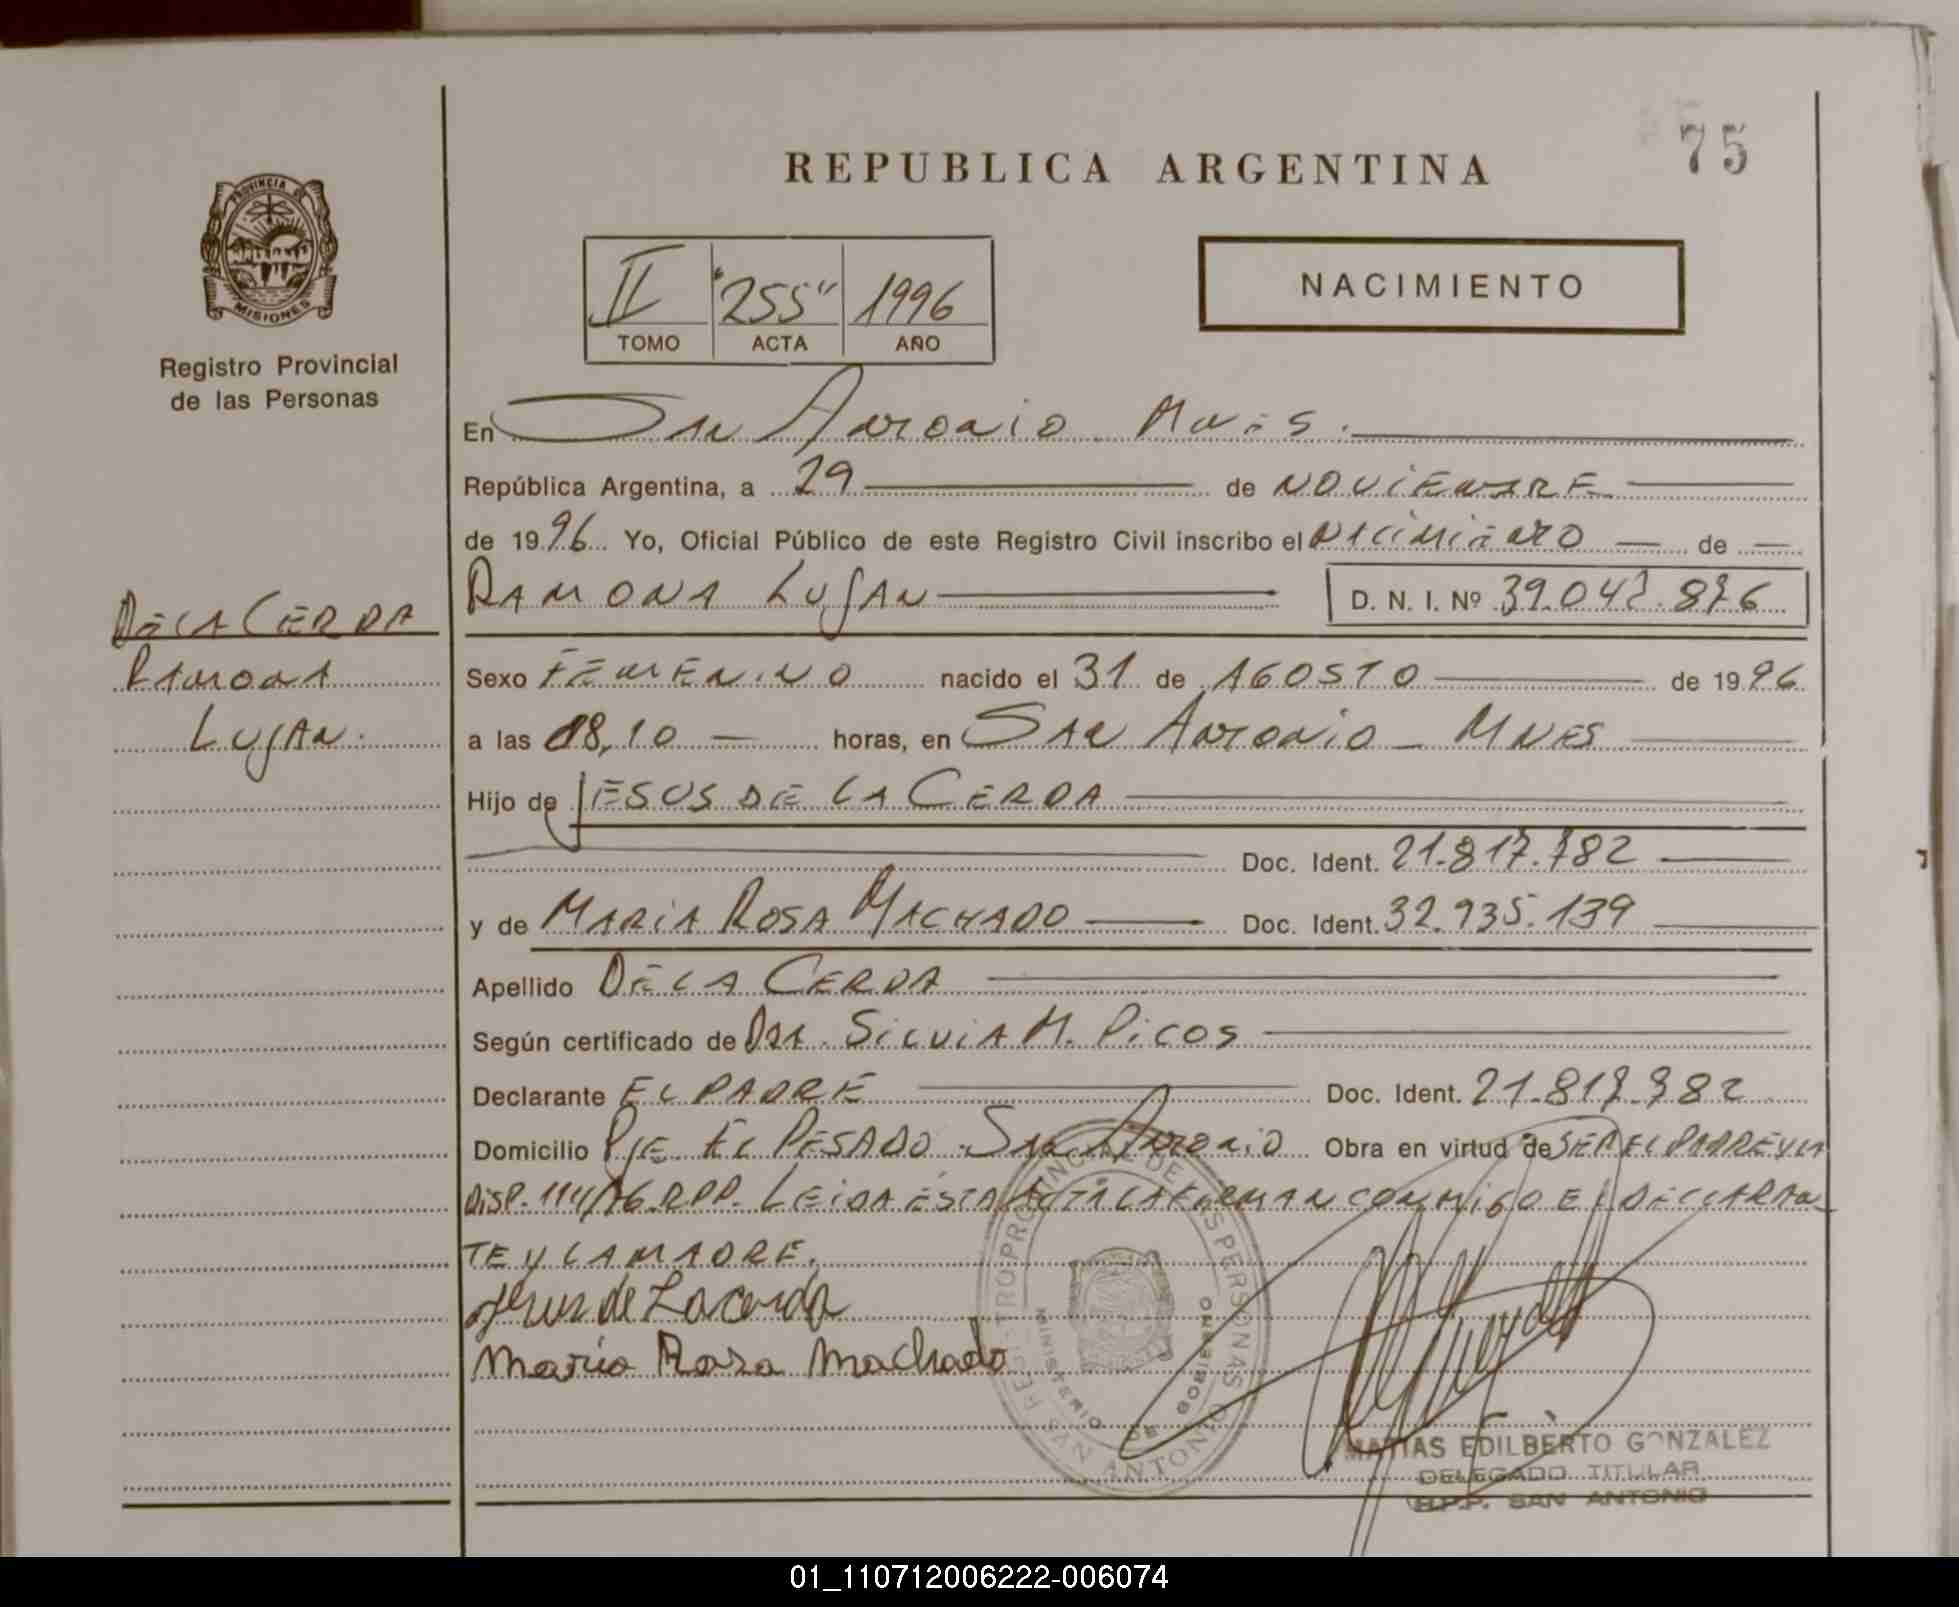 75
REPUBLICA ARGENTINA
PROVINCIA DE
MISIONES
Registro Provincial
de las Personas
II "255" 1996
TOMO ACTA AÑO
NACIMIENTO
En San Antonio Mnes.
República Argentina, a 29 de NOVIEMBRE
de 1996 Yo, Oficial Público de este Registro Civil inscribo el NACIMIENTO de
RAMONA LUJAN D. N. I. Nº 39.042.876
DE LA CERDA
RAMONA
LUJAN.
Sexo FEMENINO nacido el 31 de AGOSTO de 1996
a las 18,10 horas, en SAN ANTONIO - MNES
Hijo de JESUS DE LA CERDA
Doc. Ident. 21.817.782
y de MARIA ROSA MACHADO Doc. Ident. 32.935.139
Apellido DE LA CERDA
Según certificado de DRA. SILVIA M. PICOS
Declarante EL PADRE Doc. Ident. 21.817.782
Domicilio PJE. EL PESADO - SAN ANTONIO Obra en virtud de SER EL PADRE Y LA
DISP. 114/96 RPP. LEIDA ESTA ACTA LA FIRMAN CONMIGO EL DECLARAN
TE Y LA MADRE.
Jesus de Lacerda
Maria Rosa Machado
REGISTRO PROVINCIAL DE LAS PERSONAS
MINISTERIO DE GOBIERNO
SAN ANTONIO
MATIAS EDILBERTO GONZALEZ
DELEGADO TITULAR
R.P.P. SAN ANTONIO
01_110712006222-006074